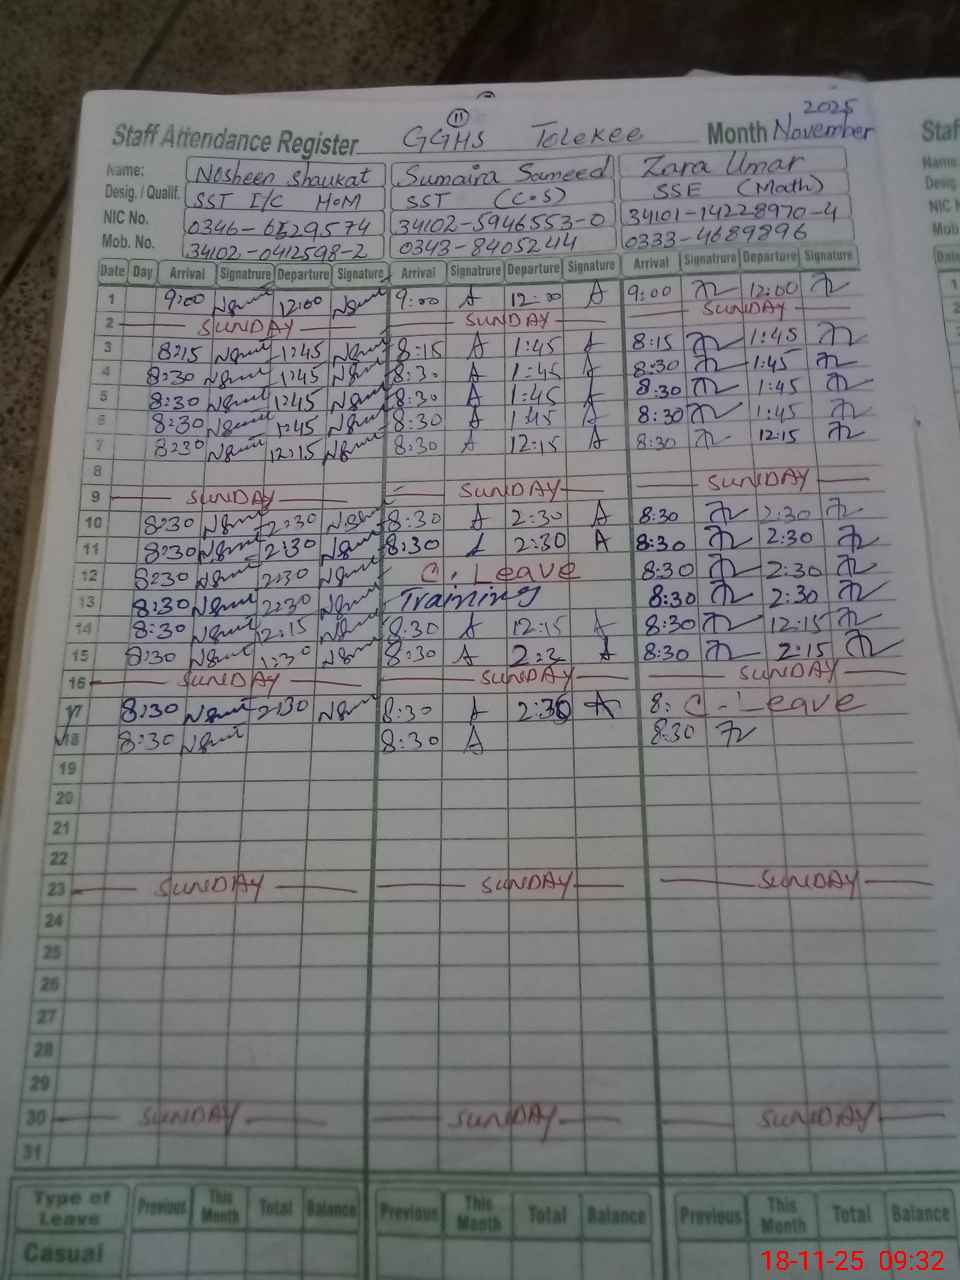 2025
11
Staff Attendance Register GGHS Tolekee Month November
Staf
Name: Nosheen Shaukat Sumaira Sameed Zara Umar
Desig. / Qualif. SST I/C H.M SST (C.S) SSE (Math)
NIC No. 0346-6529574 34102-5946553-0 34101-14228970-4
Mob. No. 34102-0412598-2 0343-8405244 0333-4689896
Date Day Arrival Signatrure Departure Signature Arrival Signatrure Departure Signature Arrival Signatrure Departure Signature
1 9:00 12:00 9:00 A 12:00 A 9:00 12:00
2 SUNDAY SUNDAY SUNDAY
3 8:15 1:45 8:15 A 1:45 A 8:15 1:45
4 8:30 1:45 8:30 A 1:45 A 8:30 1:45
5 8:30 1:45 8:30 A 1:45 A 8:30 1:45
6 8:30 1:45 8:30 A 1:45 A 8:30 1:45
7 8:30 12:15 8:30 A 12:15 A 8:30 12:15
8
9 SUNDAY SUNDAY SUNDAY
10 8:30 2:30 8:30 A 2:30 A 8:30 2:30
11 8:30 2:30 8:30 A 2:30 A 8:30 2:30
12 8:30 2:30 C. Leave 8:30 2:30
13 8:30 2:30 Training 8:30 2:30
14 8:30 12:15 8:30 A 12:15 A 8:30 12:15
15 8:30 1:30 8:30 A A 8:30 2:15
16 SUNDAY SUNDAY SUNDAY
17 8:30 2:30 8:30 A 2:30 A 8: C. Leave
18 8:30 8:30 A 8:30
19
20
21
22
23 SUNDAY SUNDAY SUNDAY
24
25
26
27
28
29
30 SUNDAY SUNDAY SUNDAY
31
Type of Leave Previous This Month Total Balance Previous This Month Total Balance Previous This Month Total Balance
Casual
18-11-25 09:32